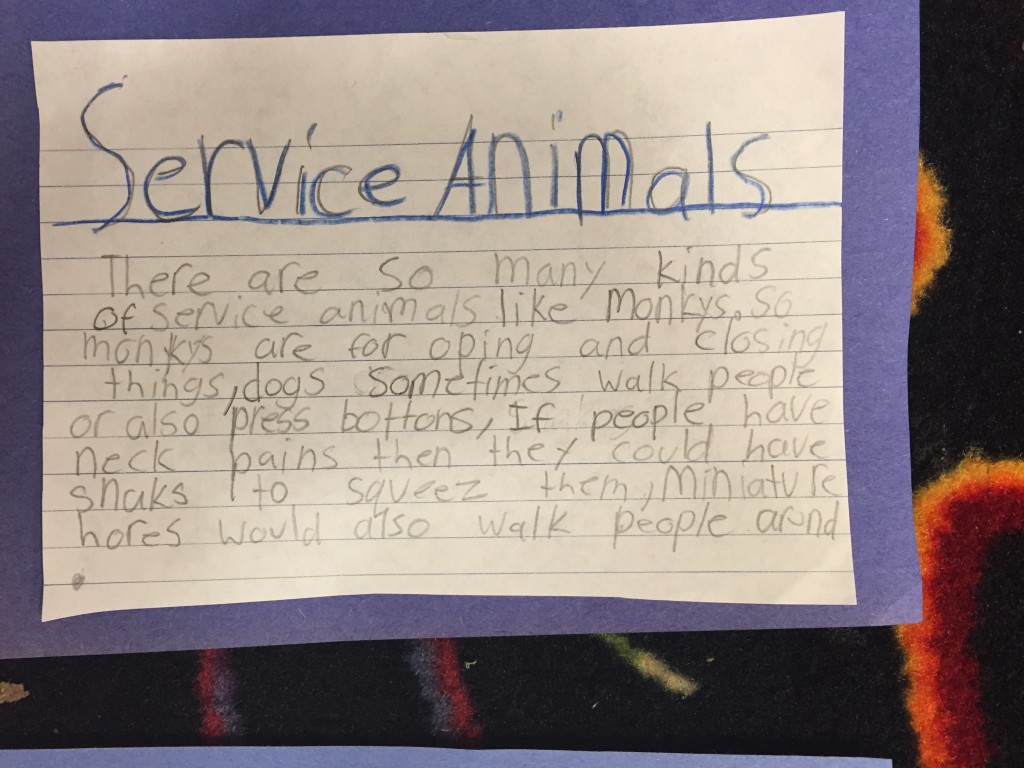 Service Animals
There are so many kinds
of service animals like monkys. So
monkys are for oping and closing
things, dogs sometimes walk people
or also press bottons, If people have
neck pains then they could have
snaks to sqveez them, Miniature
hores would also walk people arond
.